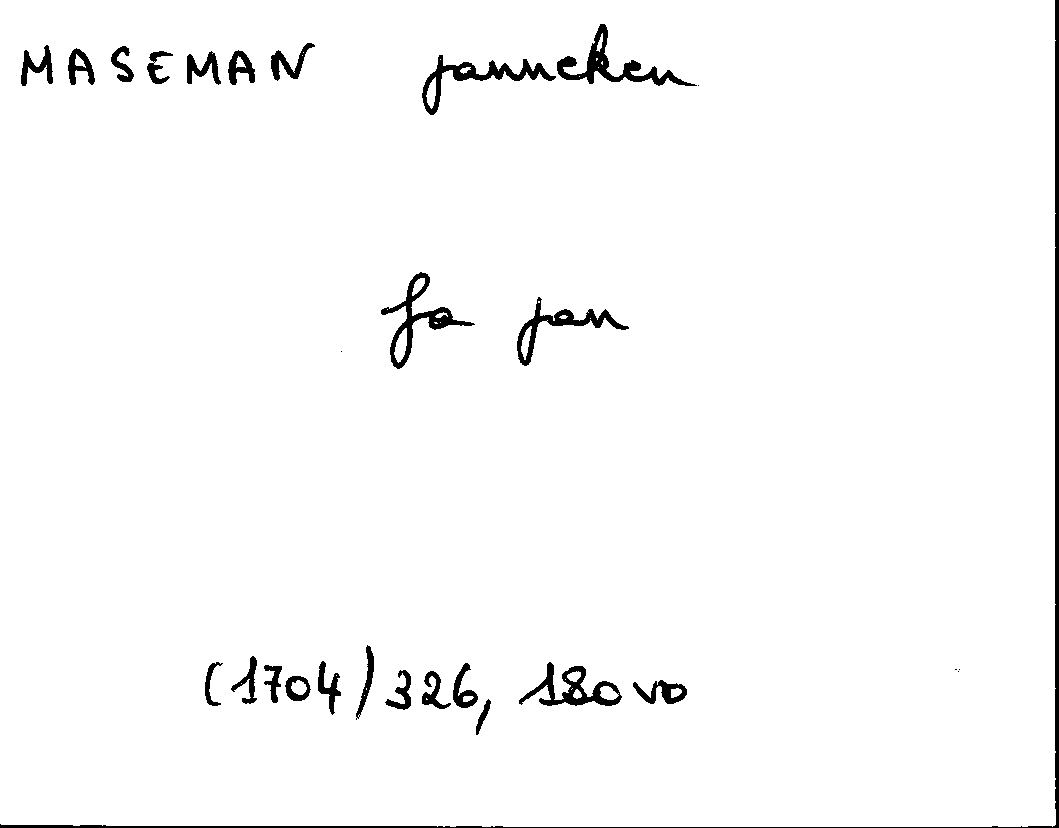 MASEMAN janneken
fa jan
(1704) 326, 180 vo